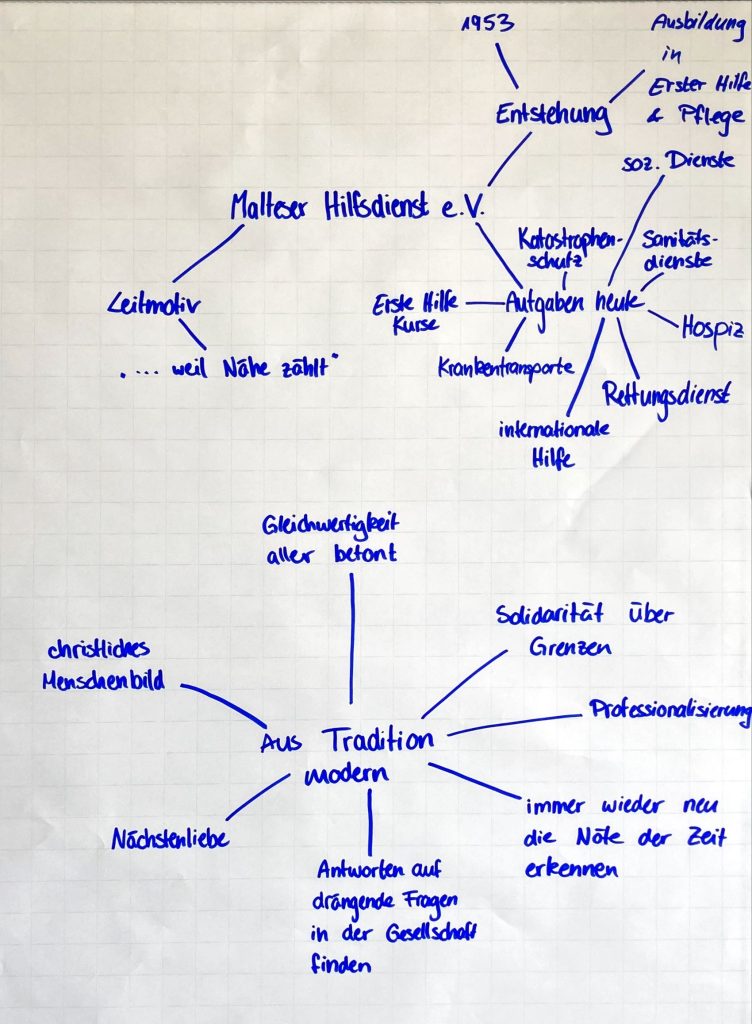 1953
Ausbildung
in
Erster Hilfe
& Pflege
Entstehung
soz. Dienste
Malteser Hilfsdienst e.V.
Katastrophen-
schutz
Sanitäts-
dienste
Leitmotiv
Erste Hilfe
Kurse
Aufgaben heute
Hospiz
"... weil Nähe zählt"
Krankentransporte
Rettungsdienst
internationale
Hilfe
Gleichwertigkeit
aller betont
Solidarität über
Grenzen
christliches
Menschenbild
Professionalisierung
Aus Tradition
modern
immer wieder neu
die Nöte der Zeit
erkennen
Nächstenliebe
Antworten auf
drängende Fragen
in der Gesellschaft
finden